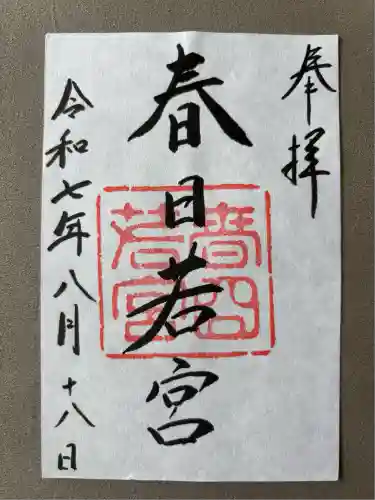 奉拝
春日若宮
春日
若宮
令和七年八月十八日